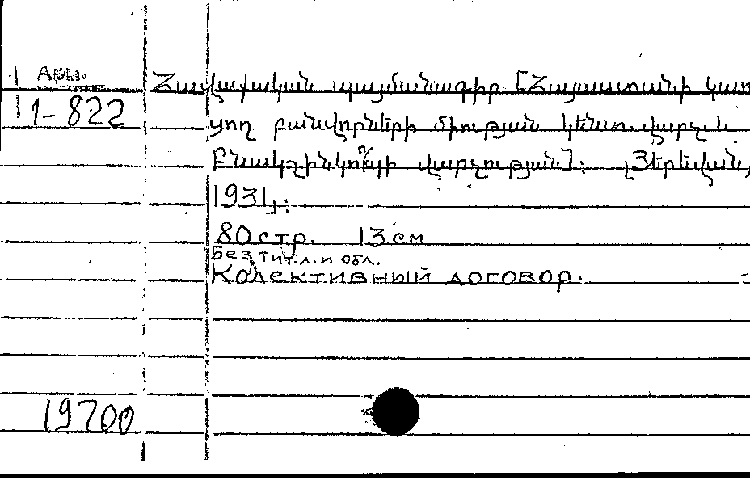 Арм.
1-822
Հավաքական պայմանագիր [Հայաստանի կառ
ցող բանվորների միության կենտ. վարչ. և
Բնակշինկոոպի վարչության]: Յերևան,
1931 թ.
80 стр. 13 см
Без тит. л. и обл.
Колективный договор.
19700